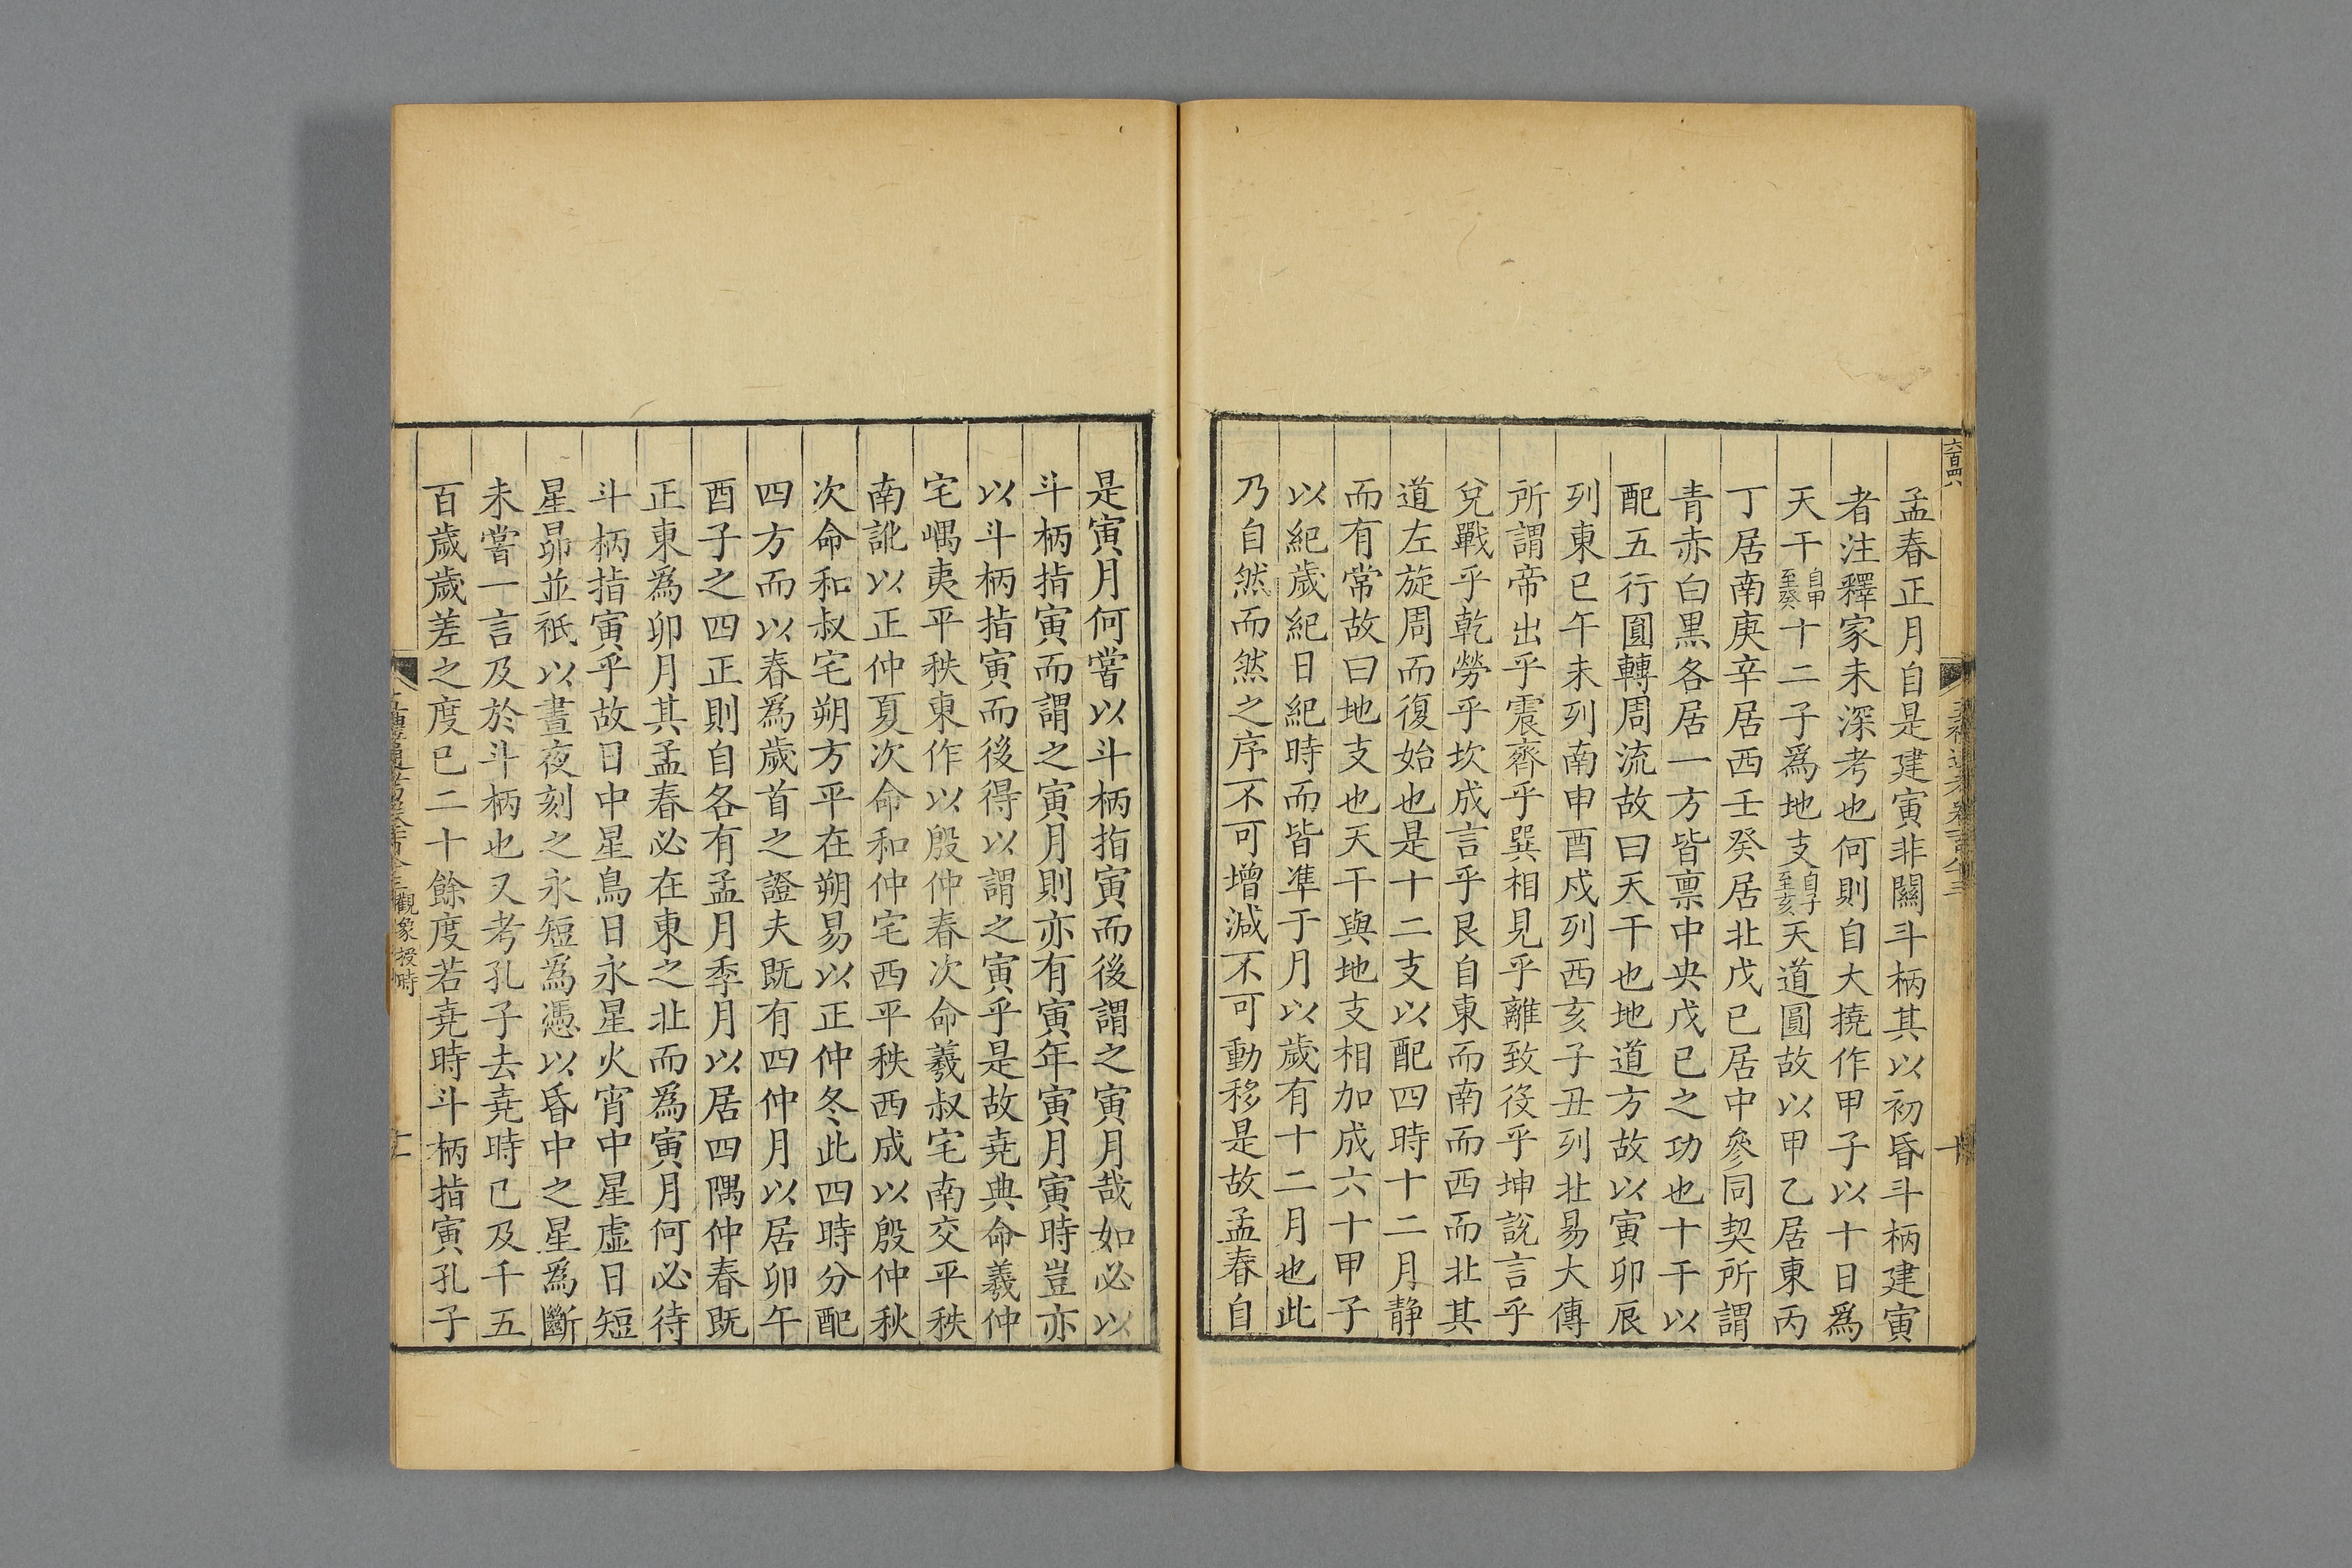 六百四六
孟春正月自是建寅非關斗柄其以初昏斗柄建寅
者注釋家未深考也何則自大撓作甲子以十日爲
天干自甲至癸十二子爲地支自子至亥天道圓故以甲乙居東丙
丁居南庚辛居西壬癸居北戊己居中參同契所謂
青赤白黑各居一方皆禀中央戊己之功也十干以
配五行圓轉周流故曰天干也地道方故以寅卯辰
列東巳午未列南申酉戍列西亥子丑列北易大傳
所謂帝出乎震齊乎巽相見乎離致役乎坤說言乎
兌戰乎乾勞乎坎成言乎艮自東而南而西而北其
道左旋周而復始也是十二支以配四時十二月静
而有常故曰地支也天干與地支相加成六十甲子
以紀歲紀日紀時而皆凖于月以歲有十二月也此
乃自然而然之序不可增減不可動移是故孟春自
是寅月何嘗以斗柄指寅而後謂之寅月哉如必以
斗柄指寅而謂之寅月則亦有寅年寅月寅時豈亦
以斗柄指寅而後得以謂之寅乎是故堯典命羲仲
宅嵎夷平秩東作以殷仲春次命羲叔宅南交平秩
南訛以正仲夏次命和仲宅西平秩西成以殷仲秋
次命和叔宅朔方平在朔易以正仲冬此四時分配
四方而以春爲歲首之證夫既有四仲月以居卯午
酉子之四正則自各有孟月季月以居四隅仲春既
正東爲卯月其孟春必在東之北而爲寅月何必待
斗柄指寅乎故日中星鳥日永星火宵中星虛日短
星昴並祇以晝夜刻之永短爲憑以昏中之星爲斷
未嘗一言及於斗柄也又考孔子去堯時已及千五
百歲歲差之度已二十餘度若堯時斗柄指寅孔子
觀象授時